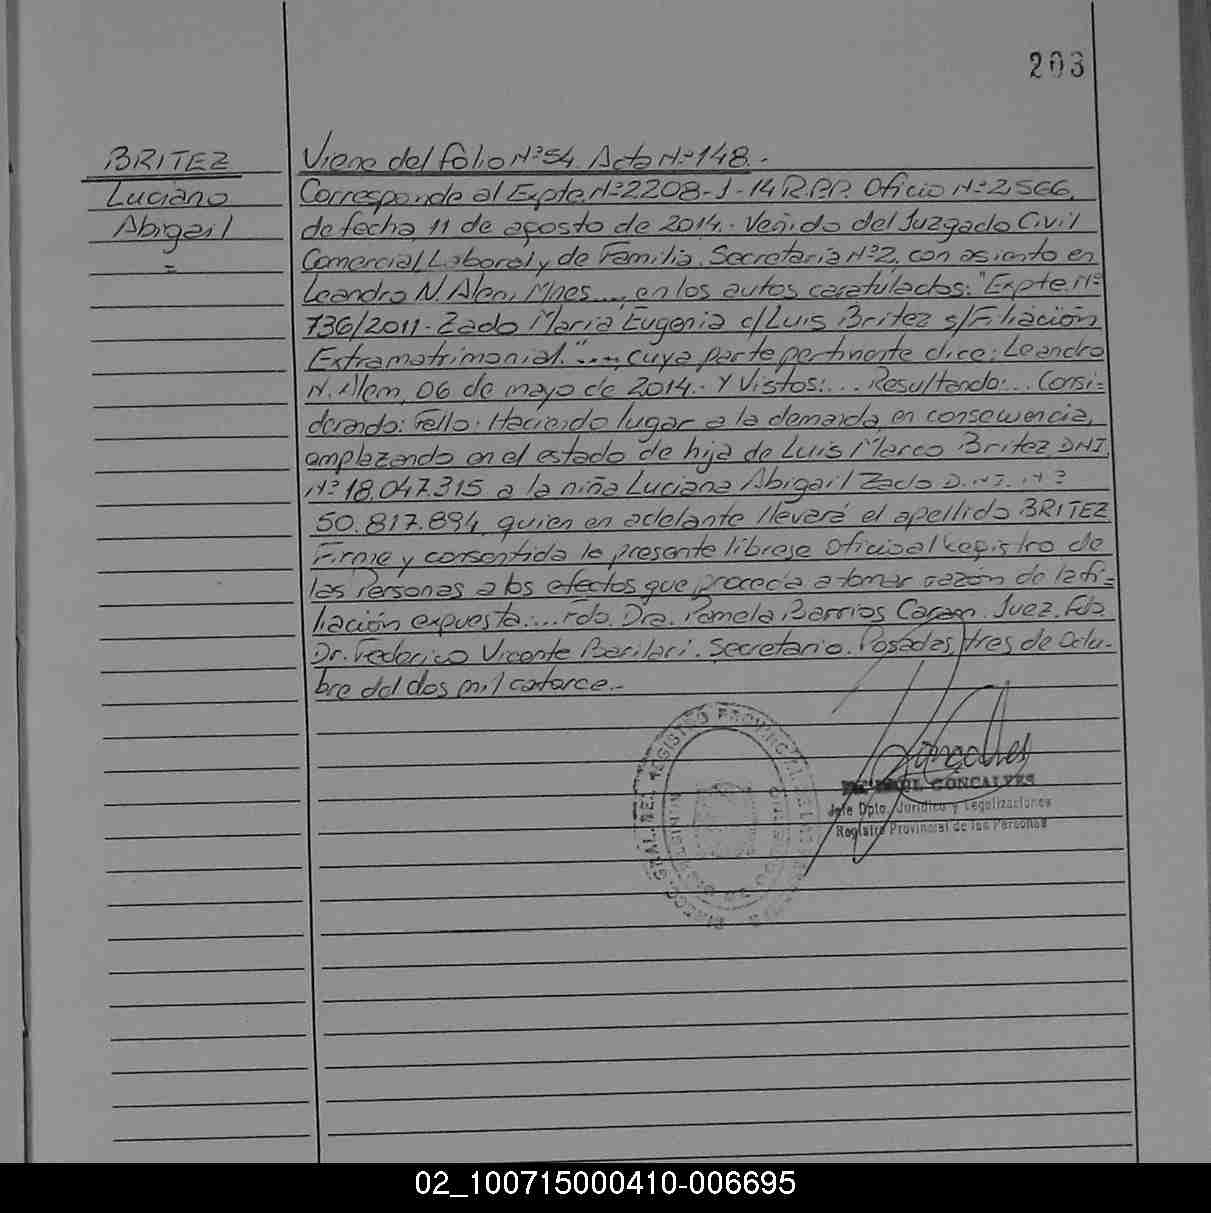 203
BRITEZ
Luciana
Abigail
=
Viene del folio Nº 54. Acta Nº 148.-
Corresponde al Expte. Nº 2208-J-14 R.P.P. Oficio Nº 2566,
de fecha, 11 de agosto de 2014.- Venido del Juzgado Civil
Comercial, Laboral y de Familia, Secretaria Nº 2, con asiento en
Leandro N. Alem, Mnes...., en los autos caratulados: "Expte. Nº
736/2011- Zado María Eugenia c/Luis Britez s/Filiación
Extramatrimonial."...., cuya parte pertinente dice: Leandro
N. Alem, 06 de mayo de 2014.- Y Vistos:... Resultando:... Consi-
derando: Fallo: Haciendo lugar a la demanda, en consecuencia,
emplazando en el estado de hija de Luis Marco Britez, DNI
Nº 18.047.315 a la niña Luciana Abigail Zado D.N.I. Nº
50.817.894, quien en adelante llevará el apellido BRITEZ
Firme y consentida la presente líbrese Oficio al Registro de
las Personas a los efectos que proceda a tomar razón de la fi=
liación expuesta.... Fdo. Dra. Pamela Barrios Caram. Juez. Fdo.
Dr. Federico Vicente Barilari. Secretario. Posadas, tres de Octu-
bre del dos mil catorce.-
GONCALVES
Jefe Dpto. Jurídico y Legalizaciones
Registro Provincial de las Personas
02_100715000410-006695